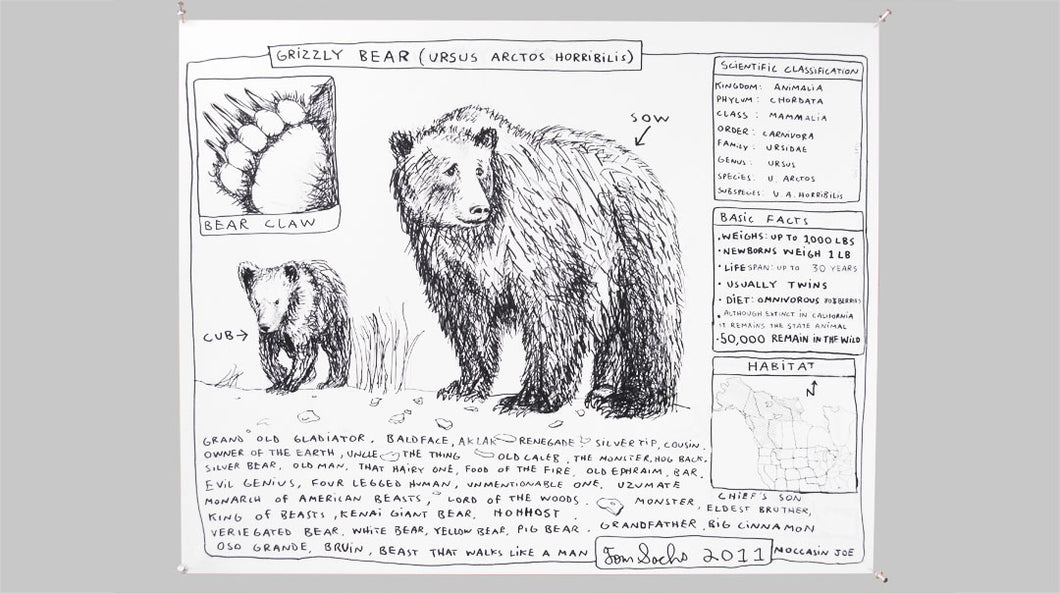 GRIZZLY BEAR (URSUS ARCTOS HORRIBILIS)
BEAR CLAW
SOW
CUB
SCIENTIFIC CLASSIFICATION
KINGDOM: ANIMALIA
PHYLUM: CHORDATA
CLASS: MAMMALIA
ORDER: CARNIVORA
FAMILY: URSIDAE
GENUS: URSUS
SPECIES: U. ARCTOS
SUBSPECIES: U.A. HORRIBILIS
BASIC FACTS
• WEIGHS: UP TO 1,000 LBS
• NEWBORNS WEIGH 1 LB
• LIFESPAN: UP TO 30 YEARS
• USUALLY TWINS
• DIET: OMNIVOROUS
• ALTHOUGH EXTINCT IN CALIFORNIA
IT REMAINS THE STATE ANIMAL
• 50,000 REMAIN IN THE WILD
HABITAT
N
GRAND OLD GLADIATOR, BALDFACE, AKLAK RENEGADE SILVERTIP, COUSIN,
OWNER OF THE EARTH, UNCLE THE THING OLD CALEB, THE MONSTER, HOG BACK,
SILVER BEAR, OLD MAN, THAT HAIRY ONE, FOOD OF THE FIRE, OLD EPHRAIM, BAR,
EVIL GENIUS, FOUR LEGGED HUMAN, UNMENTIONABLE ONE, UZUMATE
MONARCH OF AMERICAN BEASTS, LORD OF THE WOODS. MONSTER, CHIEF'S SON
KING OF BEASTS, KENAI GIANT BEAR, HOHHOST ELDEST BRUTHER,
VERIEGATED BEAR, WHITE BEAR, YELLOW BEAR, PIG BEAR, GRANDFATHER, BIG CINNAMON
OSO GRANDE, BRUIN, BEAST THAT WALKS LIKE A MAN Tom Sachs 2011 MOCCASIN JOE